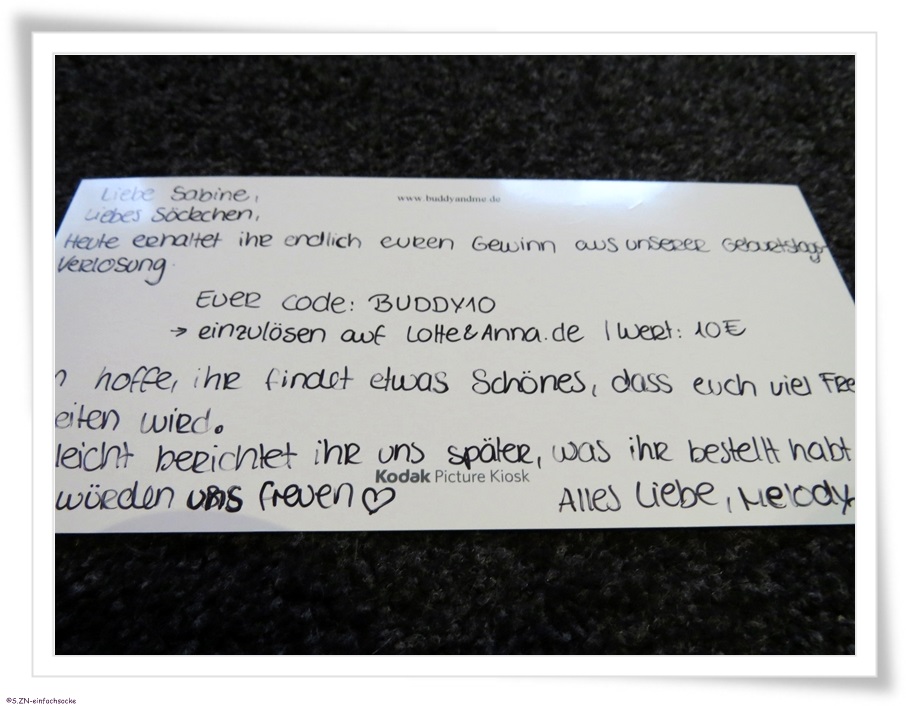 Liebe Sabine,
www.buddyandme.de
Liebes Söckchen,
Heute erhaltet ihr endlich euren Gewinn aus unserer Geburtstags-
Verlosung.
Euer Code: BUDDY10
→ einzulösen auf Lotte&Anna.de | Wert: 10€
hoffe, ihr findet etwas Schönes, dass euch viel Fre
eiten wird.
leicht berichtet ihr uns später, was ihr bestellt habt
Kodak Picture Kiosk
würden uns freuen ♡ Alles Liebe, Melody
©S.ZN-einfachsocke